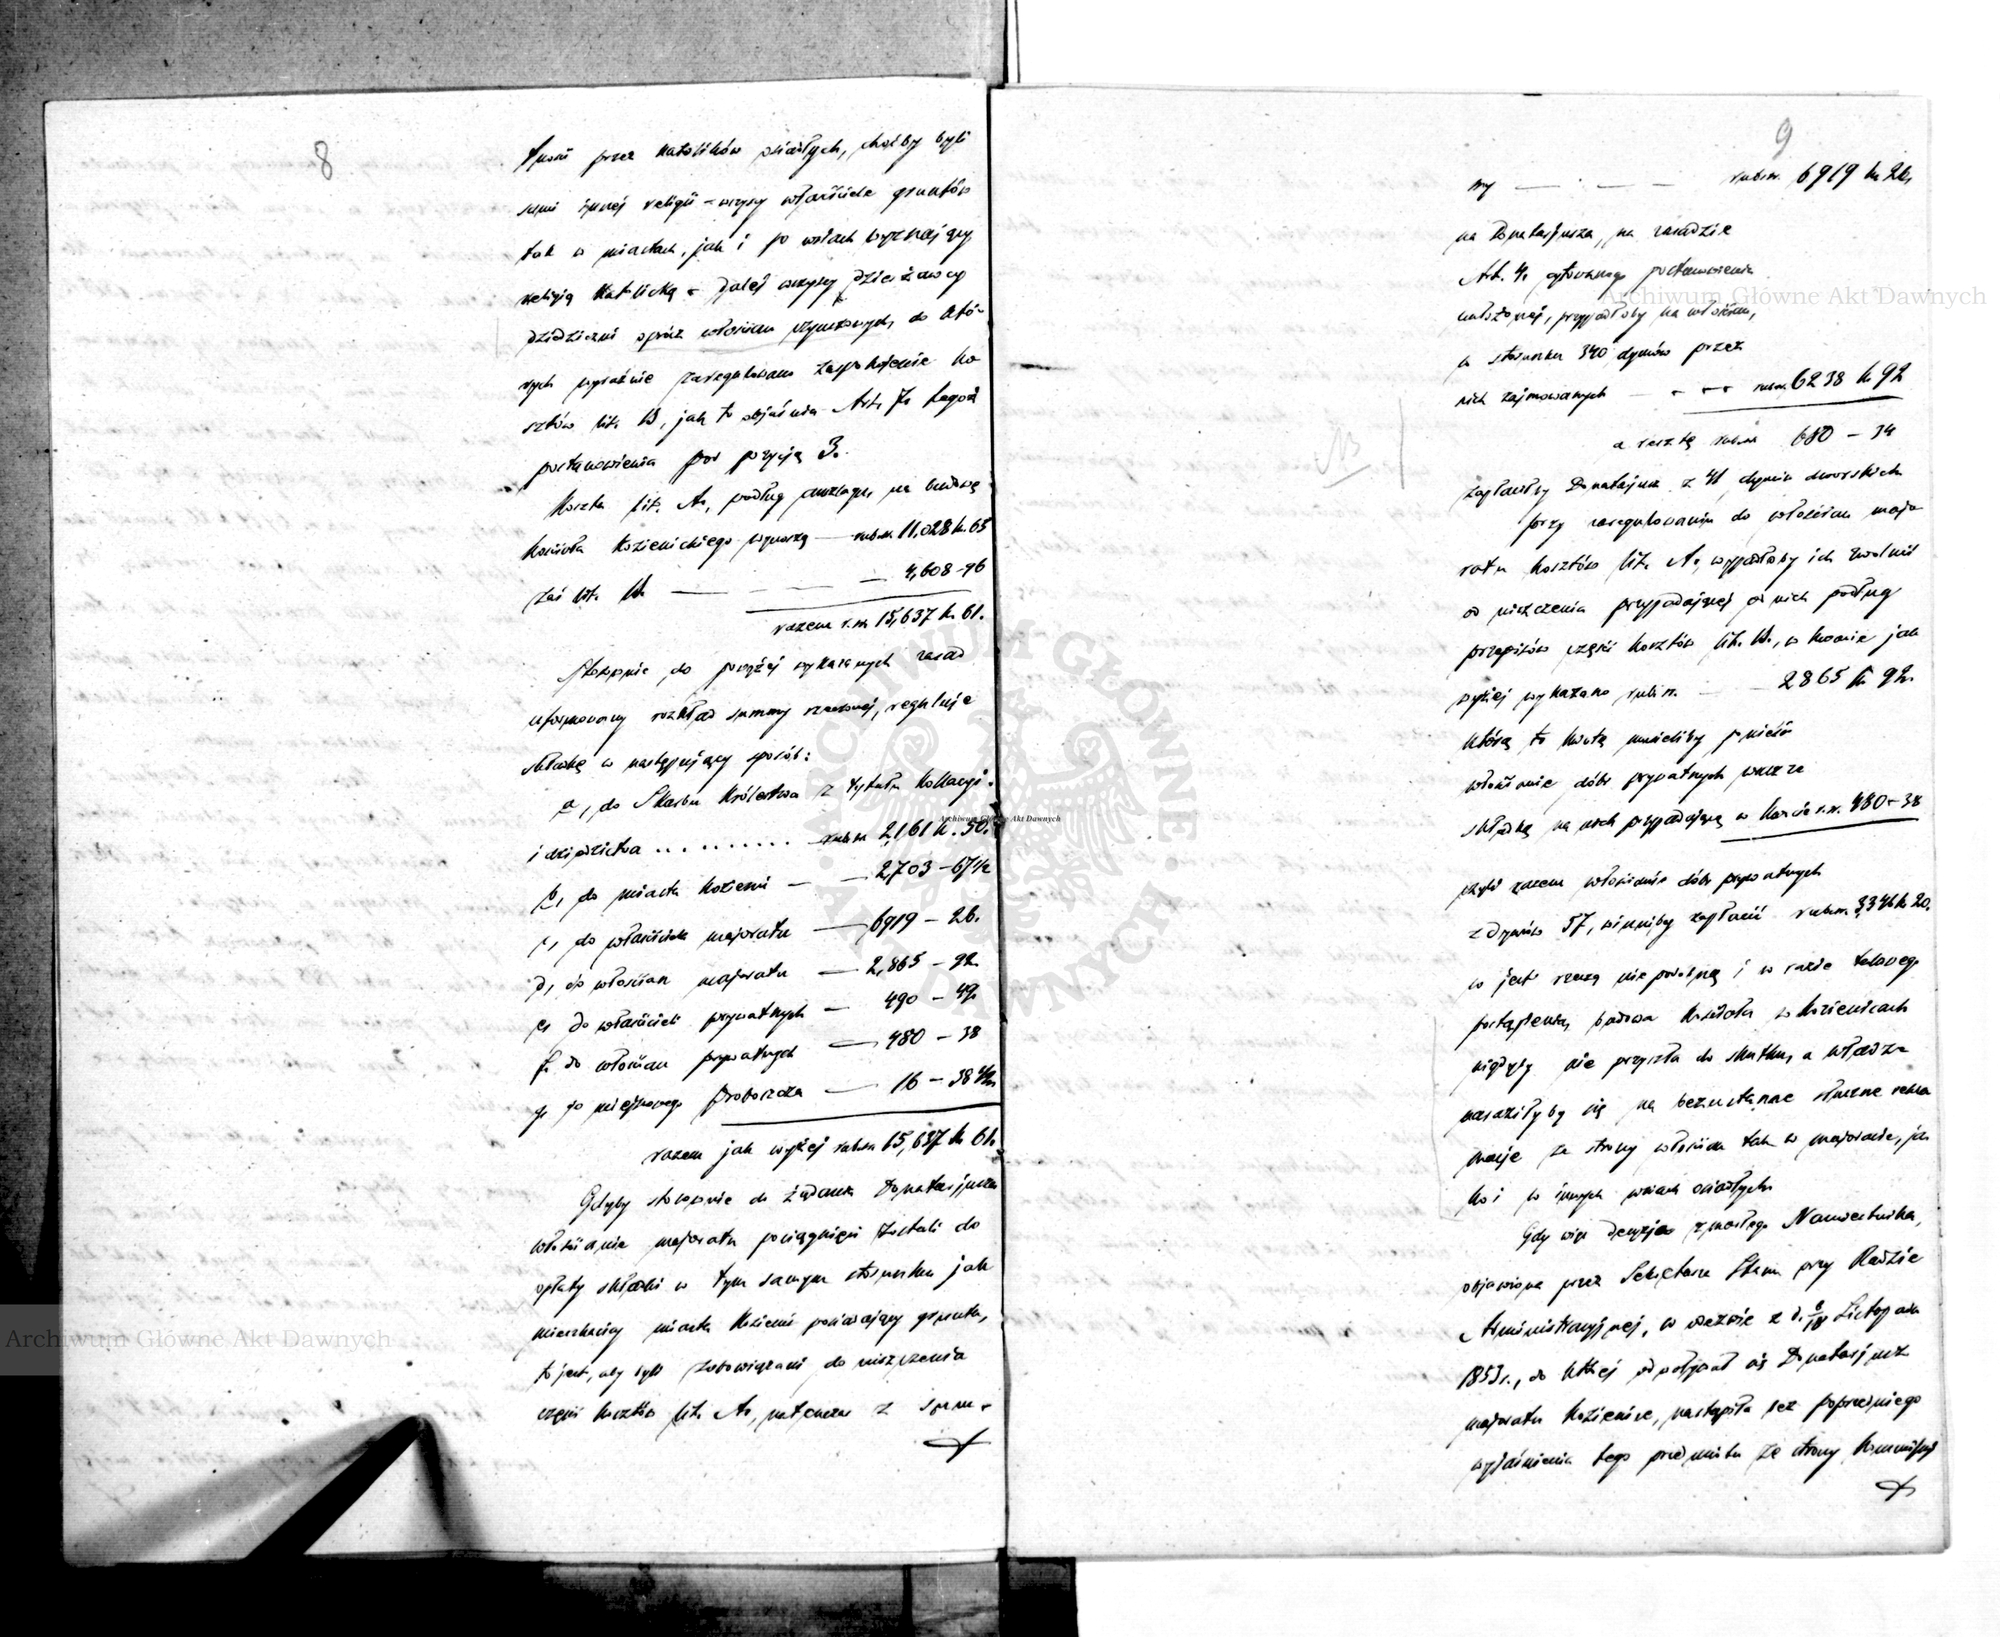 8
przez Katolików osiadłych, choćby byli
sami innej religii – wszyscy właściciele gruntów
tak w miastach, jak i po wsiach wyznający
religią Katolicką – dalej wszyscy dzierżawcy
dziedziczni oprócz włościan czynszowych, do któ-
rych wyraźnie zaregulowano zaspokojenie ko
sztów lit. B, jak to objaśnia Art. 7. tegoż
postanowienia pod pozycją 3.
Koszta lit. A., podług anszlagu na budowę
Kościoła Kozienickiego wynoszą — rub.sr. 11,028 k. 65
zaś lit. B. — — — 4,608 – 96
razem r.sr. 15,637 k. 61.
Stosownie do powyżej wykazanych zasad
uformowany rozkład summy rzeczonej, reguluje
składkę w następujący sposób:
a, do Skarbu Królestwa z tytułu Kollacyi
i dziedzictwa . . . . . . . . . rub.sr. 2,161 k. 50.
b, do miasta Kozienic — — 2,703 – 67 1/2
c, do właściciela majoratu — 6919 – 26.
d, do włościan majoratu — 2,865 – 92
e, do właścicieli prywatnych — 490 – 49.
f, do włościan prywatnych — 480 – 38
g, do miejscowego Proboszcza — 16 – 38 1/2
razem jak wyżej rub.sr. 15,637 k. 61.
Gdyby stosownie do żądania Donatarjusza
włościanie majoratu pociągnięci zostali do
opłaty składki w tym samym stosunku jak
mieszkańcy miasta Kozienic posiadający grunta,
to jest, aby byli zobowiązani do uiszczenia
części kosztów lit. A., natenczas z sum-
9
my — — — rub.sr. 6919 k. 26.
na Donatarjusza, na zasadzie
Art. 4. cytowanego postanowienia
nałożonej, przypadłoby na włościan,
w stosunku 340 dymów przez
nich zajmowanych — — — rub.sr. 6238 k. 92
a resztę rub.sr. 680 – 34
zapłaciłby Donatarjusz z 41 dymów dworskich
przy zaregulowaniu do włościan majo
ratu kosztów lit. A., wypadłoby ich zwolnić
od uiszczenia przypadającej od nich podług
przepisów części kosztów lit. B., w kwocie jak
wyżej wykazano rub.sr. — 2865 k. 92.
którą to kwotę musieliby ponieść
włościanie dóbr prywatnych prócz
składkę na nich przypadającą w kwocie r.sr. 480 – 38
czyli razem włościanie dóbr prywatnych
z dymów 57, winniby zapłacić rub.sr. 3,346 k. 30.
co jest rzeczą niepodobną i w razie takowego
postąpienia, budowa Kościoła w Kozienicach
nigdyby nie przyszła do skutku, a władza
naraziłyby się na bezustanne słuszne rekla
macje ze strony włościan tak w majoracie, ja
ko i w innych wsiach osiadłych.
Gdy więc decyzja zmarłego Namiestnika,
objawiona przez Sekretarza Stanu przy Radzie
Administracyjnej, w odezwie z d. 6/18 Listopada
1853 r., do której odwołał się Donatarjusz
majoratu Kozienice, nastąpiła bez poprzedniego
wyjaśnienia tego przedmiotu ze strony Kommissyi
Archiwum Główne Akt Dawnych
Archiwum Główne Akt Dawnych
Archiwum Główne Akt Dawnych
ARCHIWUM GŁÓWNE AKT DAWNYCH